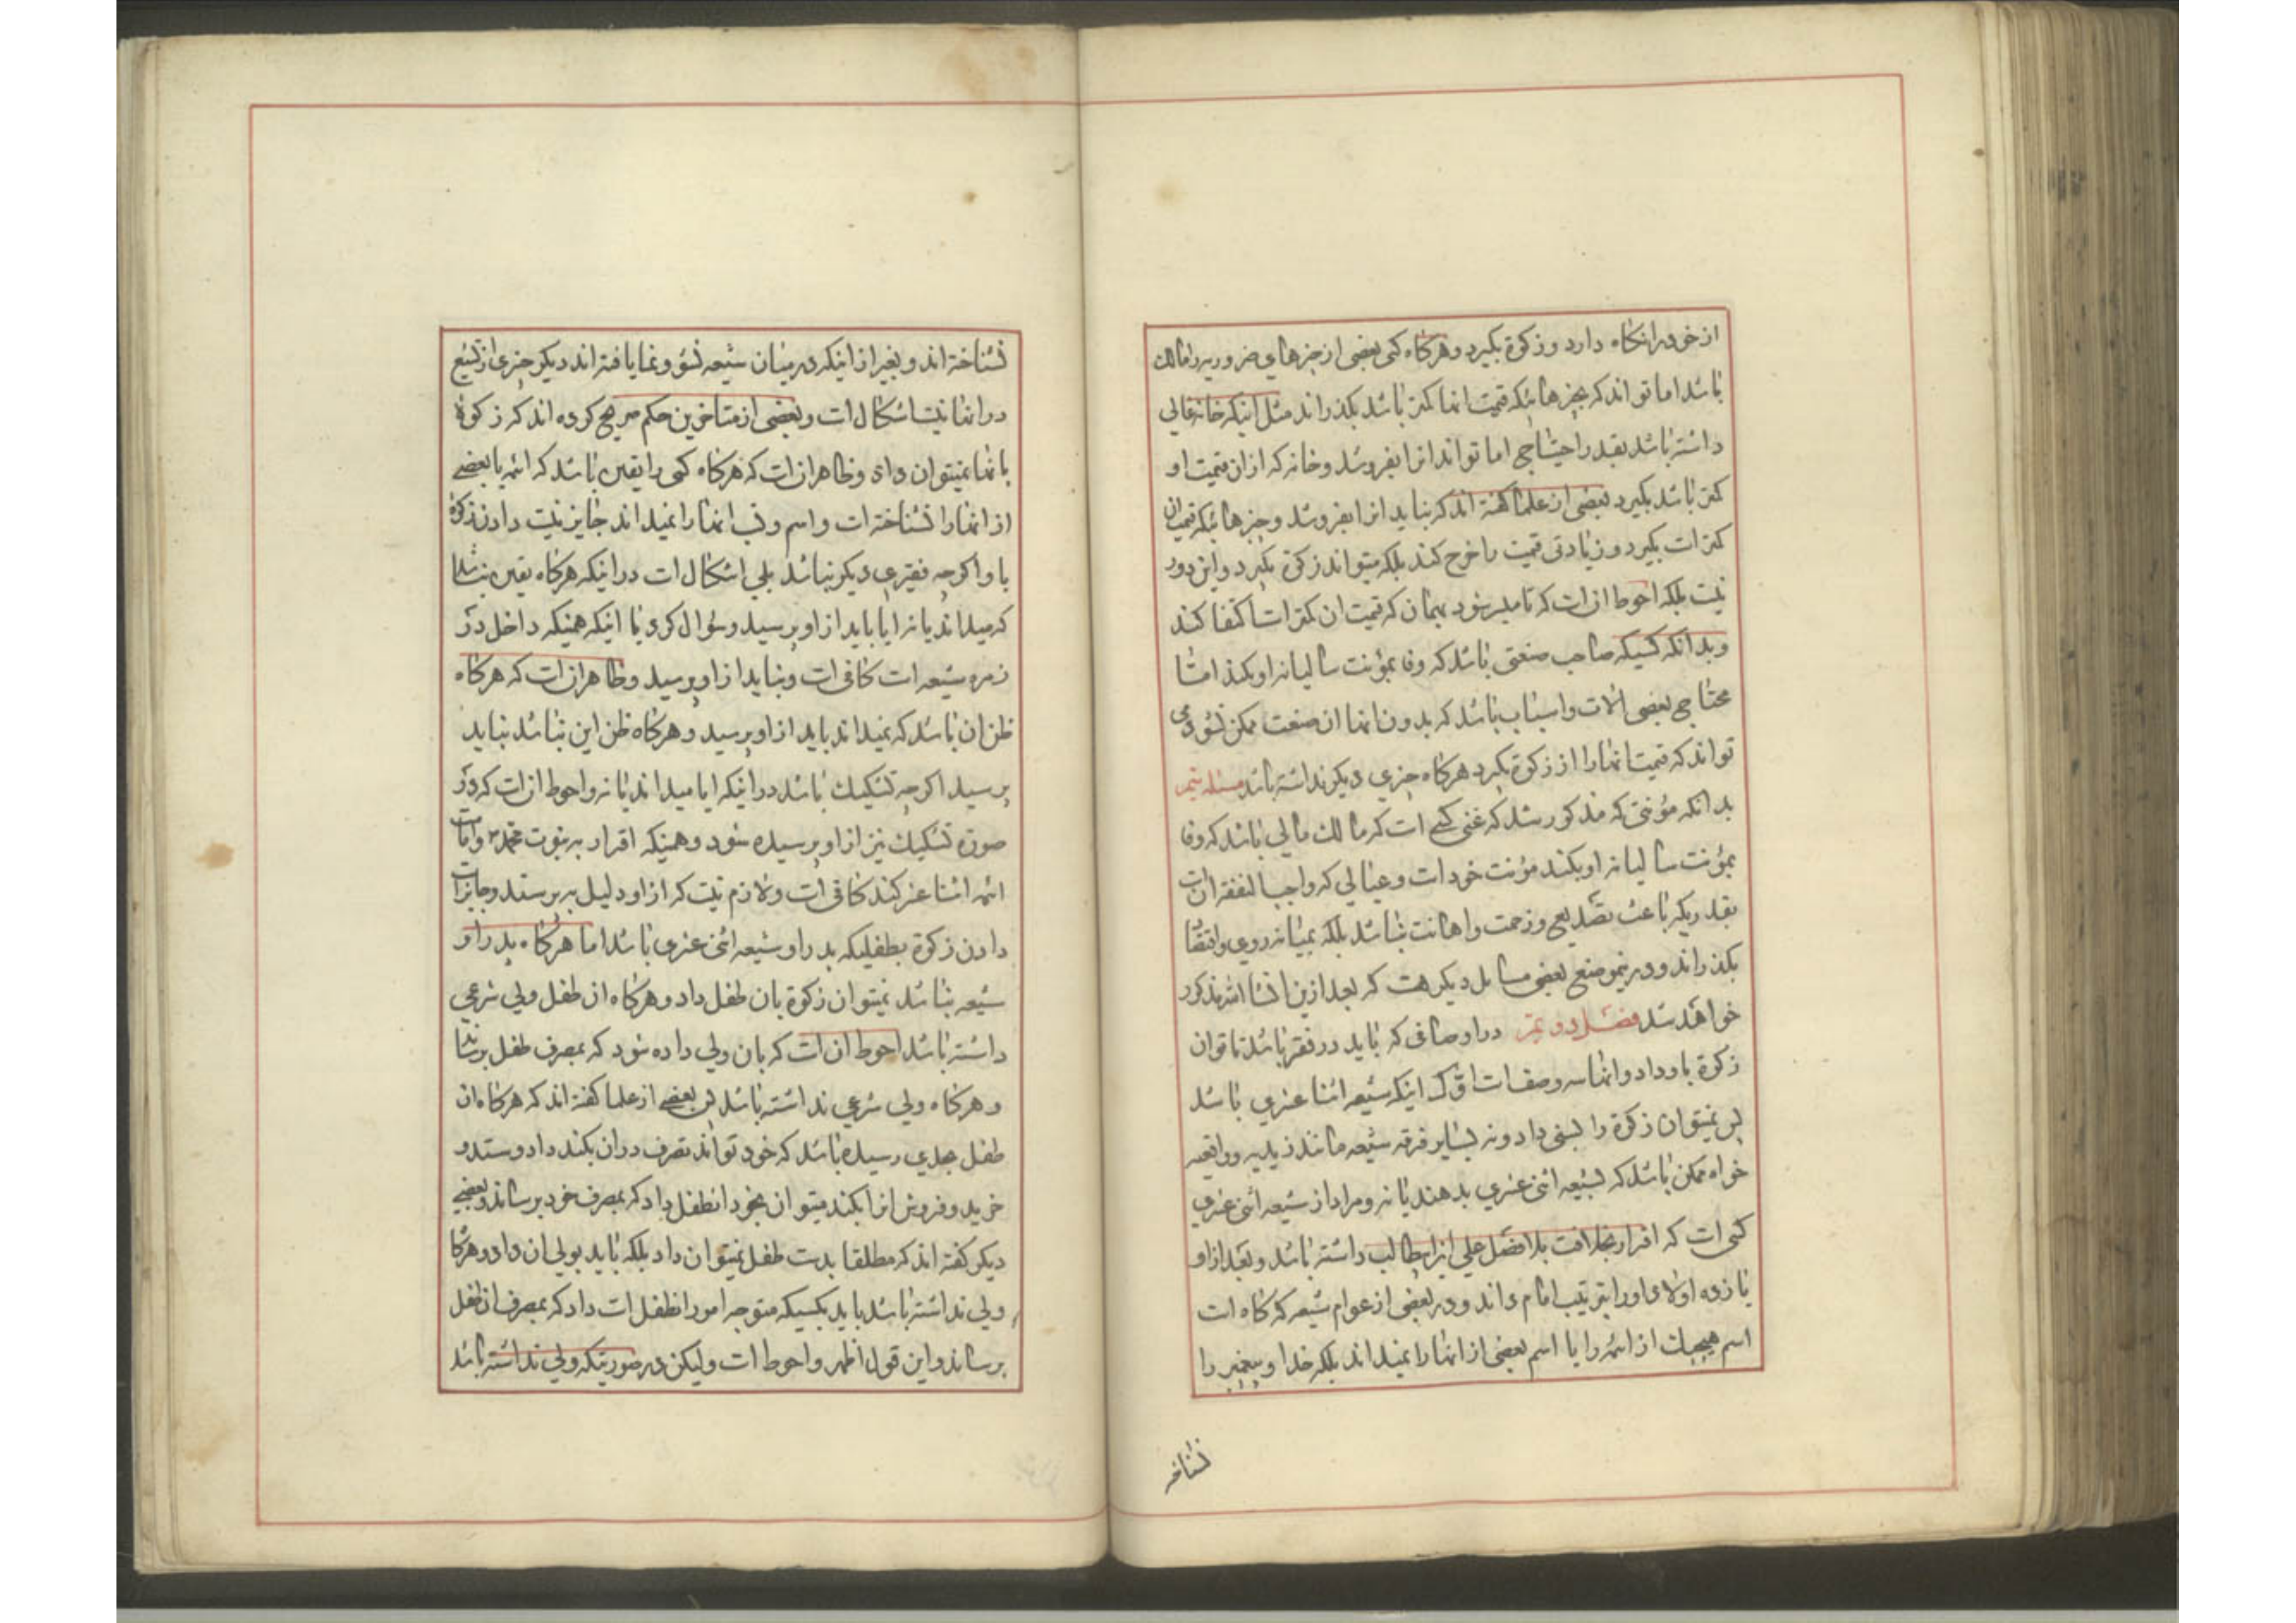 از خود را نگاه دارد و زکوة بگیرد و هرگاه کسی بعضی از چیزهای ضروریه را مالک
باشد اما تواند که بچیزهائیکه قیمت انها کمتر باشد بگذراند مثل اینکه خانه عالی
داشته باشد بقدر احتیاج اما تواند انرا بفروشد و خانه که ازان قیمت او
کمتر باشد بگیرد بعضی از علما گفته اند که بباید انرا بفروشد و چیزهائیکه قیمت ان
کمتر است بگیرد و زیادتی قیمت را خرج کند بلکه میتواند زکوة بگیرد و این دور
نیست بلکه احوط ان است که تا میسر شود بهمان که قیمت ان کمتر است اکتفا کند
و بدانکه کسیکه صاحب صنعتی باشد که وفا بمؤنت سالیانه او بکند اما
محتاج ببعضی الات و اسباب باشد که بدون انها ان صنعت ممکن نشود می
تواند که قیمت انها را از زکوة بگیرد هرگاه چیزی دیگر نداشته باشد مسئله
بدانکه مؤنتی که مذکور شد که غنی کسی است که مالک مالی باشد که وفا
بمؤنت سالیانه او بکند مؤنت خود است و عیالی که واجب النفقه ان است
بقدریکه باعث تصدیع و زحمت و اهانت نباشد بلکه بمیانه روی و اقتضا
بگذراند و درینموضع بعضی مسایل دیگر هست که بعد ازین انشا الله مذکور
خواهد شد فصل دویم در اوصافی که باید در فقیر باشد تا توان
زکوة باو داد و انها سه وصف است اول اینکه شیعه اثنا عشری باشد
پس نمیتوان زکوة را بسنی داد و نه بسایر فرقه شیعه مانند زیدیه و واقفیه
خواه ممکن باشد که بشیعه اثنی عشری بدهند یا نه و مراد از شیعه اثنی عشری
کسی است که اقرار بخلافت بلا فصل علی ابن ابیطالب داشته باشد و بعد از او
یازده اولاد او را بترتیب امام داند و در بعضی از عوام شیعه که گاه است
اسم هیچیک از ائمه را یا اسم بعضی از انها را نمیداند بلکه خدا و پیغمبر را
نشناخته
نشناخته اند و بغیر از اینکه در میان شیعه نشو و نما یافته اند دیگر چیزی از تشیع
در انها نیست اشکال است و بعضی از متاخرین حکم صریح کرده اند که زکوة
بانها نمیتوان داد و ظاهر ان است که هرگاه کسی را یقین باشد که ائمه یا بعضی
از انها را نشناخته است و اسم و نسب انها را نمیداند جایز نیست دادن زکوة
باو اگرچه فقیری دیگر نباشد بلی اشکال است در اینکه هرگاه یقین نباشد
که میداند یا نه ایا باید از او پرسید و سؤال کرد یا اینکه همینکه داخل در
زمره شیعه است کافی است و نباید از او پرسید و ظاهر ان است که هرگاه
ظن ان باشد که نمیداند باید از او پرسید و هرگاه ظن این نباشد نباید
پرسید اگرچه تشکیک باشد در اینکه ایا میداند یا نه و احوط ان است که در
صورة تشکیک نیز از او پرسیده شود و همینکه اقرار به نبوت محمد و امامت
ائمه اثنا عشر کند کافی است و لازم نیست که از او دلیل بپرسند و جایز است
دادن زکوة بطفلیکه پدر او شیعه اثنی عشری باشد اما هرگاه پدر او
شیعه نباشد نمیتوان زکوة بان طفل داد و هرگاه ان طفل ولی شرعی
داشته باشد احوط ان است که بان ولی داده شود که بمصرف طفل برساند
و هرگاه ولی شرعی نداشته باشد پس بعضی از علما گفته اند که هرگاه ان
طفل بحدی رسیده باشد که خود تواند تصرف در ان بکند و داد و ستد و
خرید و فروش انرا بکند میتوان بخود انطفل داد که بمصرف خود برساند و بعضی
دیگر گفته اند که مطلقا بدست طفل نمیتوان داد بلکه باید بولی ان داد و هرگاه
ولی نداشته باشد باید بکسیکه متوجه امور انطفل است داد که بمصرف ان طفل
برساند و این قول اظهر و احوط است و لیکن در صورتیکه ولی نداشته باشد